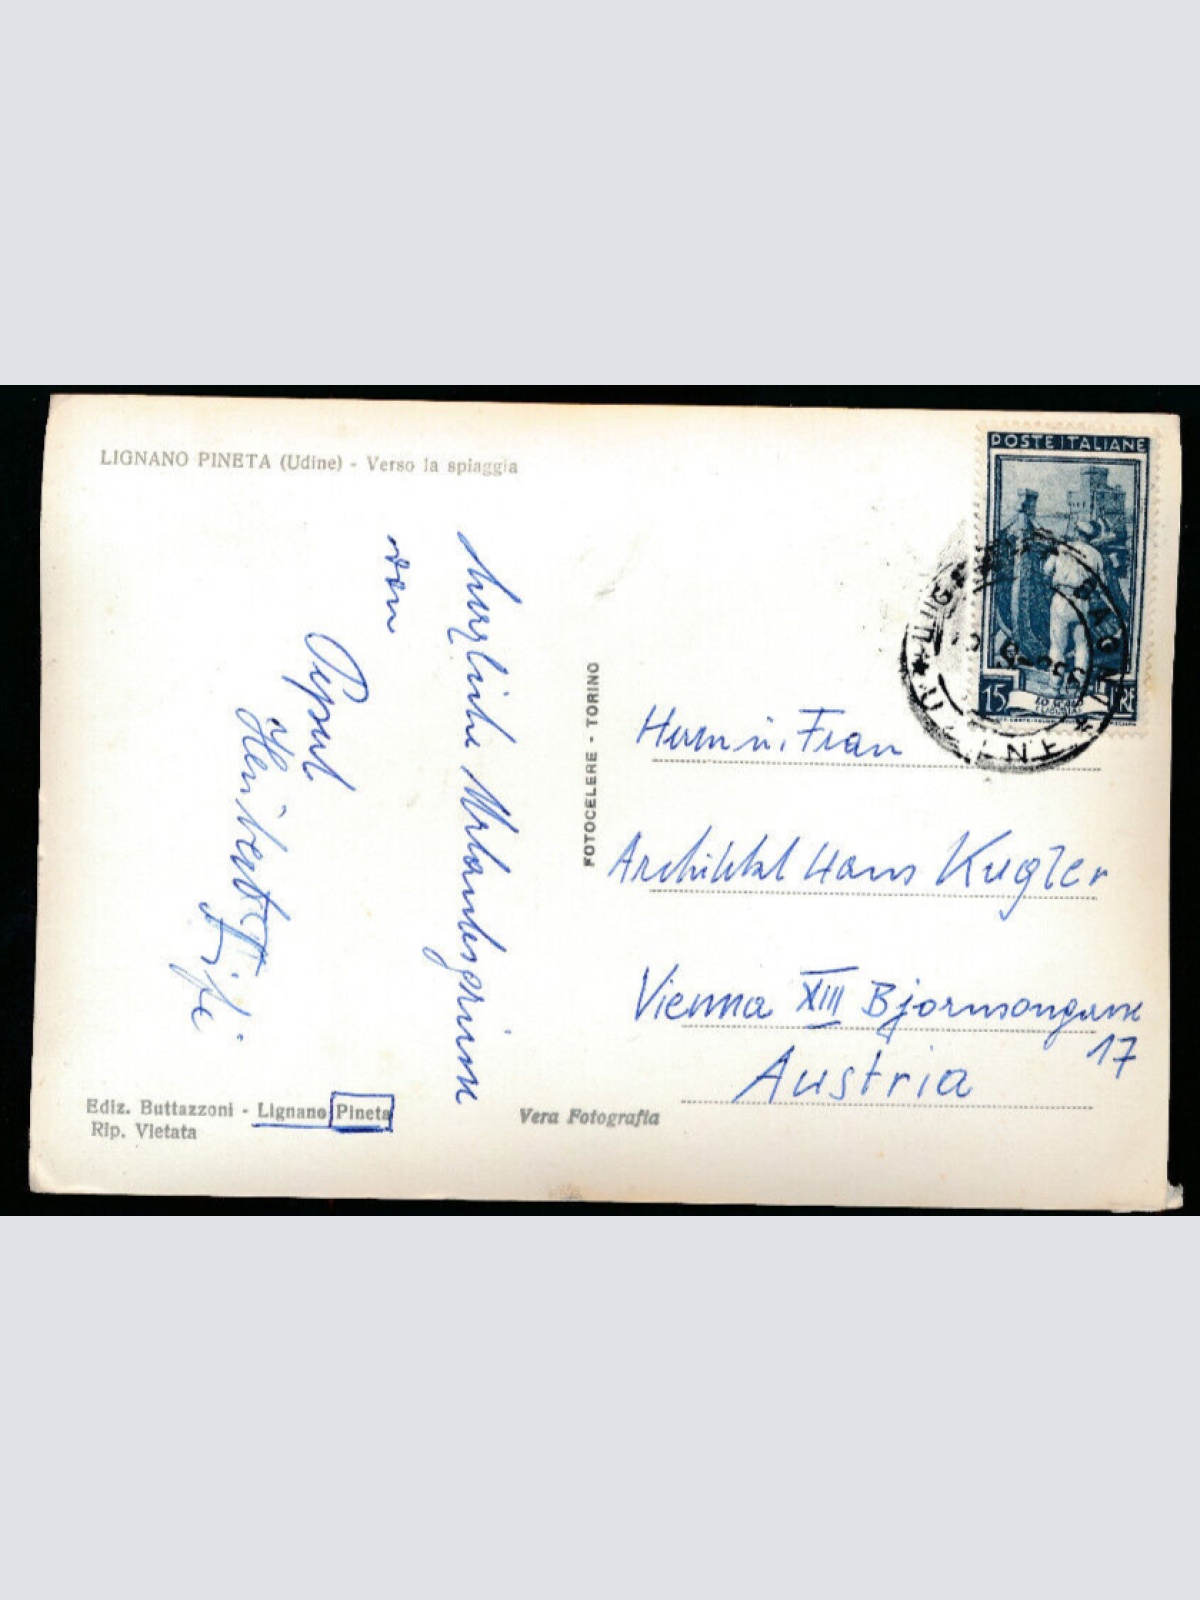 LIGNANO PINETA (Udine) - Verso la spiaggia
herzliche Urlaubsgrüsse
von
u.
Ediz. Buttazzoni - Lignano Pineta
Rip. Vietata
Vera Fotografia
FOTOCELERE - TORINO
POSTE ITALIANE
15 LIRE
BAGNI
UDINE
Herrn u. Frau
Architekt Hans Kugler
Vienna XIII Björnsongasse
17
Austria